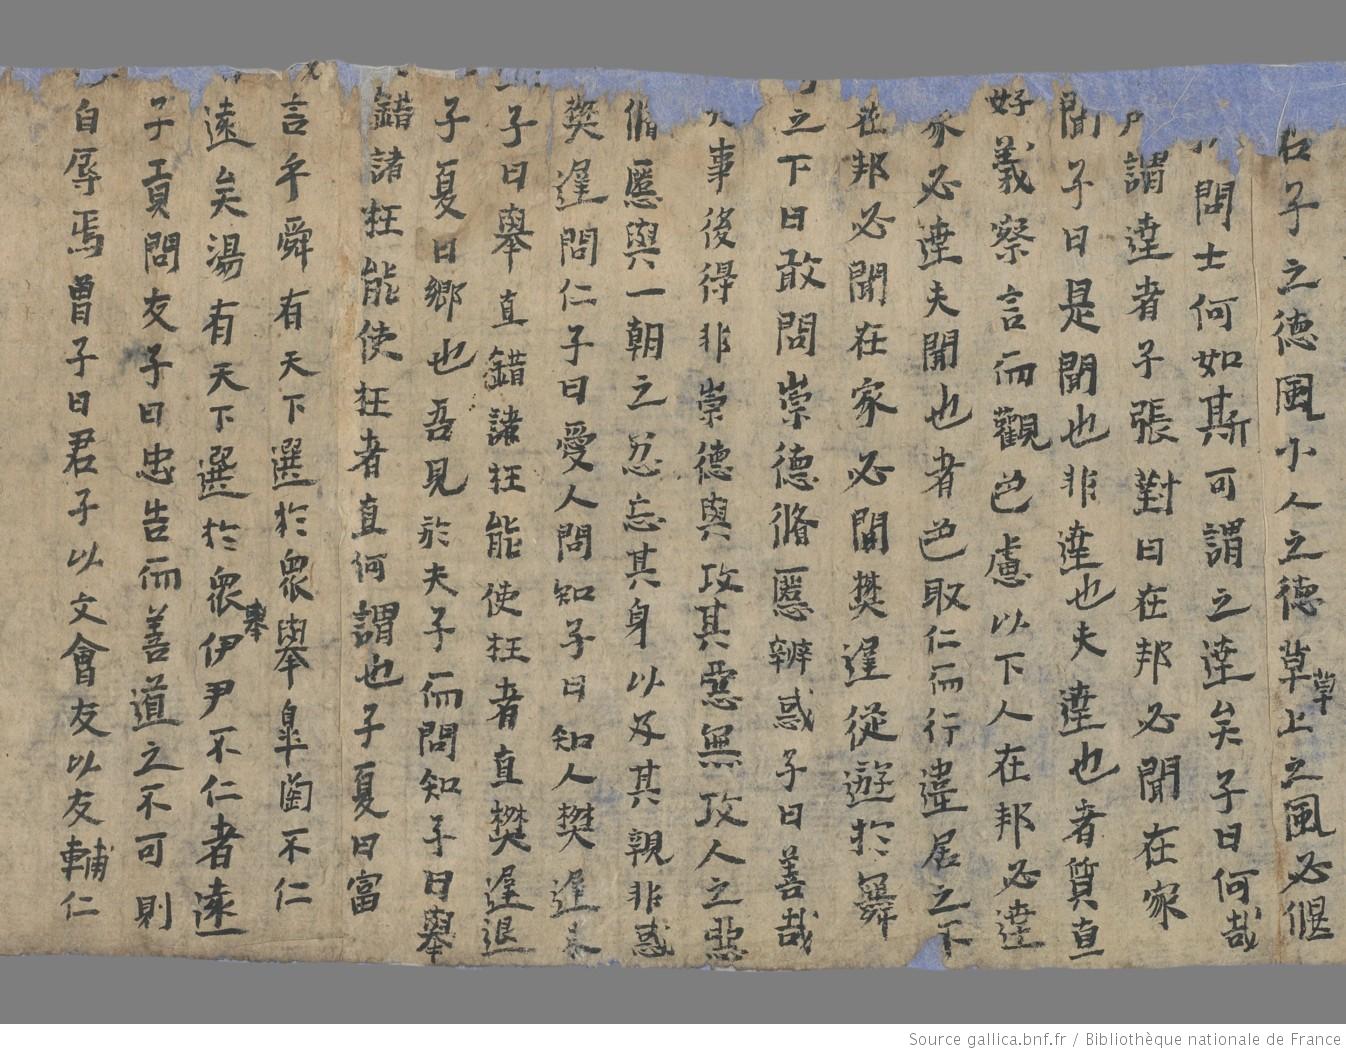 君子之德風小人之德草草上之風必偃
問士何如斯可謂之達矣子曰何哉
謂達者子張對曰在邦必聞在家
聞子曰是聞也非達也夫達也者質直
好義察言而觀色慮以下人在邦必達
家必達夫聞也者色取仁而行違居之下
在邦必聞在家必聞樊遲從遊於舞
之下曰敢問崇德脩慝辨惑子曰善哉
事後得非崇德與攻其惡無攻人之惡
脩慝與一朝之忿忘其身以及其親非惑
樊遲問仁子曰愛人問知子曰知人樊遲未
子曰舉直錯諸枉能使枉者直樊遲退
子夏曰鄉也吾見於夫子而問知子曰舉
錯諸枉能使枉者直何謂也子夏曰富
言乎舜有天下選於眾舉皐陶不仁
遠矣湯有天下選於眾舉伊尹不仁者遠
子貢問友子曰忠告而善道之不可則
自辱焉曾子曰君子以文會友以友輔仁
Source gallica.bnf.fr / Bibliothèque nationale de France